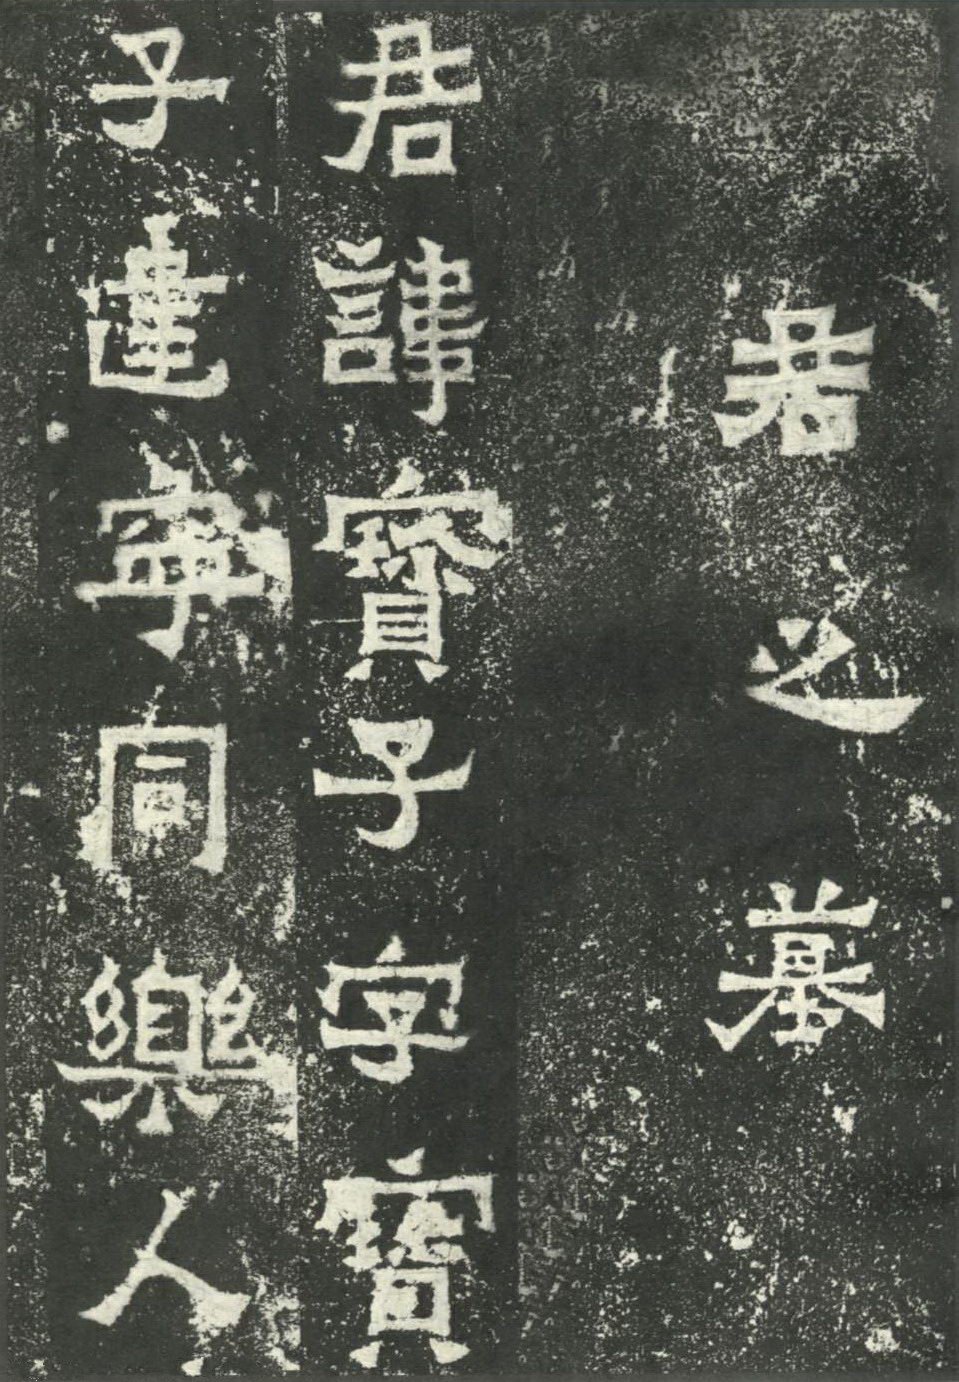 君之墓
君諱寳子字寳
子建寧同樂人